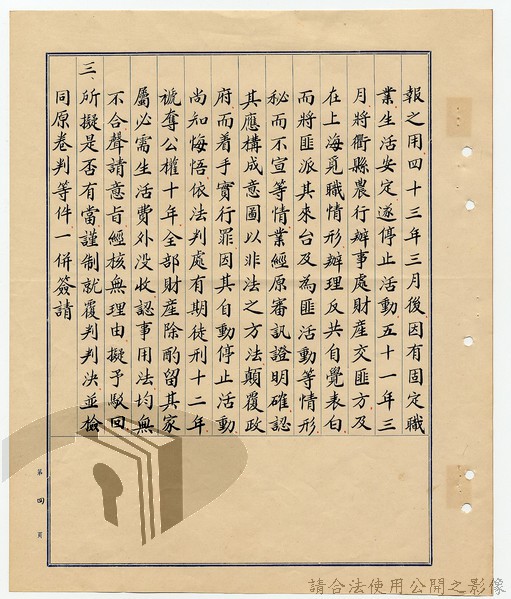 報之用四十三年三月後因有固定職
業生活安定遂停止活動五十一年三
月將衢縣農行辦事處財產交匪方及
在上海覓職情形辦理反共自覺表白
而將匪派其來台及為匪活動等情形
秘而不宣等情業經原審訊證明確認
其應構成意圖以非法之方法顛覆政
府而着手實行罪因其自動停止活動
尚知悔悟依法判處有期徒刑十二年
褫奪公權十年全部財產除酌留其家
屬必需生活費外没收認事用法均無
不合聲請意旨經核無理由擬予駁回
三、所擬是否有當謹制就覆判判决並檢
同原卷判等件一併簽請
第四頁
請合法使用公開之影像